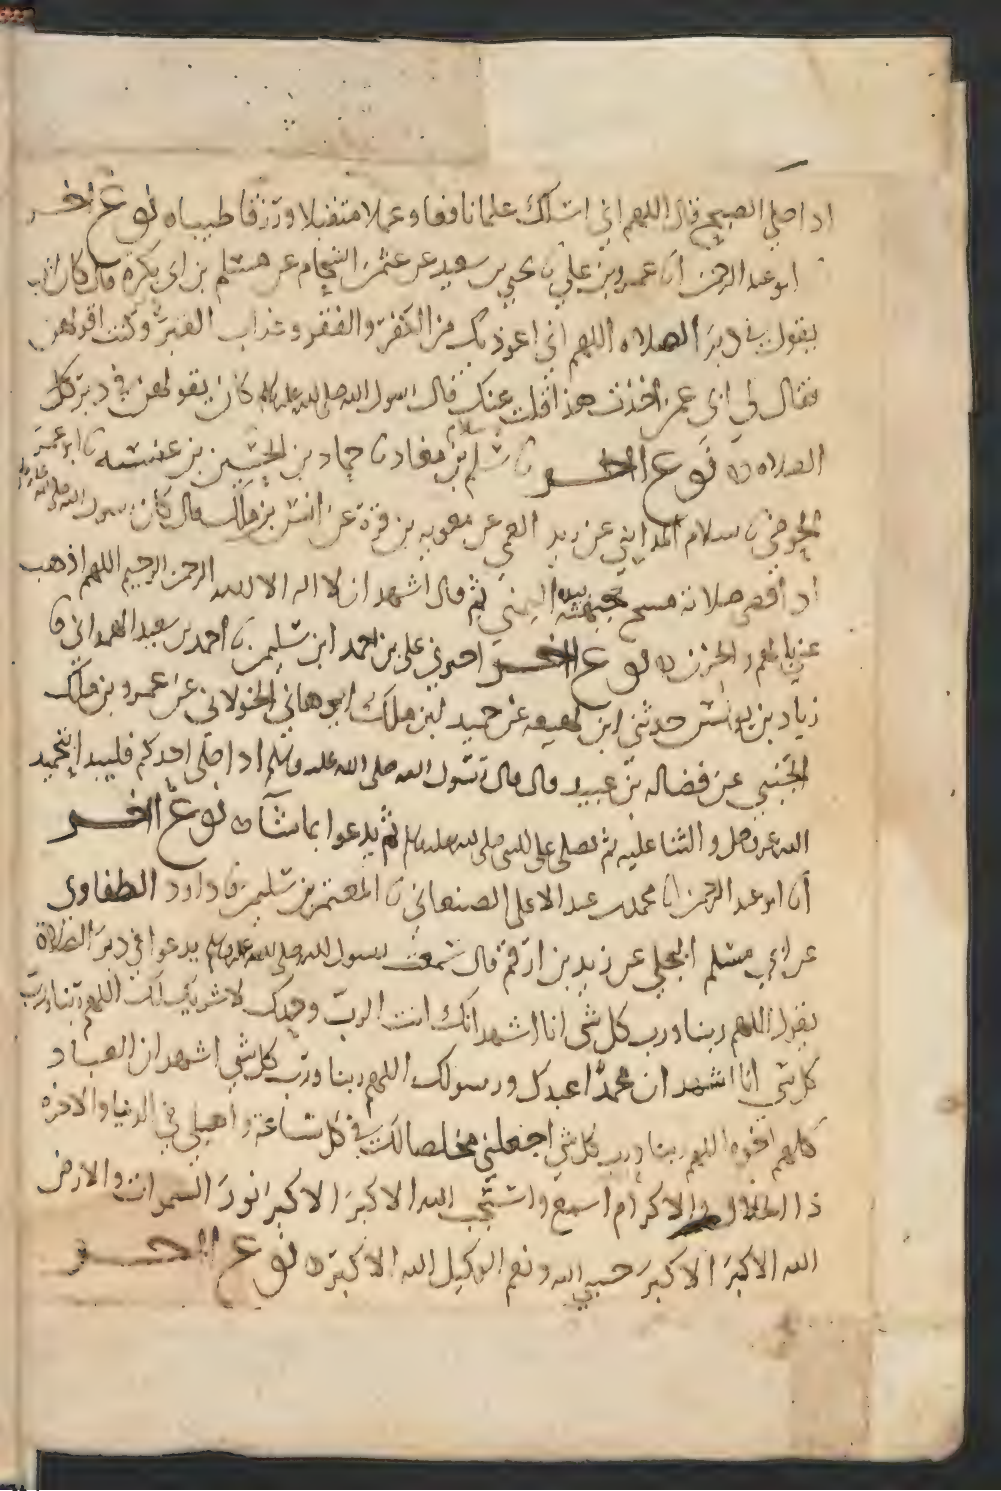 اذا صلى الصبح قال اللهم اني اسئلك علما نافعا وعملا متقبلا ورزقا طيبا ه نوع اخر
ابو عبد الرحمن انا عمرو بن علي نا يحيى بن سعيد عن عثمن الشحام عن مسلم بن ابي بكرة قال كان ابي
يقول في دبر الصلاه اللهم اني اعوذ بك من الكفر والفقر وعذاب القبر وكنت اقولهن
فقال لي اي عمن اخذت هذا قلت عنك قال رسول الله صلى الله عليه وسلم كان يقولهن في دبر كل
الصلاه ه نوع اخر نا سلم بن معاد نا حماد بن الحسين بن عنبسه نا ابو عمر
الحوضي نا سلام المدايني عن زيد العمي عن معويه بن قرة عن انس بن ملك قال كان رسول الله صلى الله عليه وسلم
اذا قضى صلاته مسح جبهته بيده اليمني ثم قال اشهد ان لا اله الا الله الرحمن الرحيم اللهم اذهب
عني الهم والحزن ه نوع اخر اخبرني علي بن احمد ابن سليمن نا احمد بن سعيد الهمداني نا
زياد بن يونس حدثني ابن لهيعه عن حميد بن هاني ابو هاني الخولاني عن عمرو بن ملك
الجنبي عن فضاله بن عبيد قال قال رسول الله صلى الله عليه وسلم اذا صلى احدكم فليبدا بتحميد
الله عز وجل والثنا عليه ثم يصلي على النبي صلى الله عليه وسلم ثم يدعوا بما شآ ه نوع اخر
انا ابو عبد الرحمن انا محمد بن عبد الاعلى الصنعاني نا المعتمر بن سليمن نا داود الطفاوي
عن ابي مسلم البجلي عن زيد بن ارقم قال سمعت رسول الله صلى الله عليه وسلم يدعوا في دبر الصلاة
يقول اللهم ربنا ورب كل شي انا اشهد انك انت الرب وحدك لا شريك لك اللهم ربنا ورب
كل شي انا اشهد ان محمدا عبدك ورسولك اللهم ربنا ورب كل شي اشهد ان العباد
كلهم اخوه اللهم ربنا ورب كل شي اجعلني مخلصا لك في كل ساعة واهلي في الدنيا والاخره
ذا الجلال والاكرام اسمع واستجب الله الاكبر الاكبر نور السموات والارض
الله الاكبر الاكبر حسبي الله ونعم الوكيل الله الاكبر ه نوع اخر